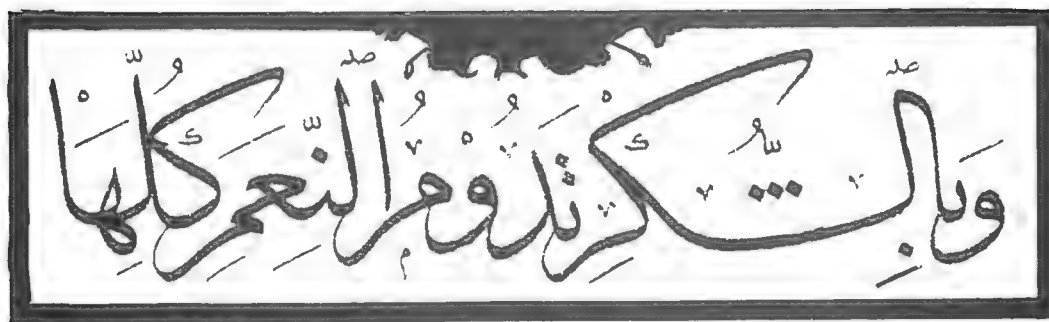 وَبِالشُّكْرِ تَدُومُ النِّعَمِ كُلِّهَا